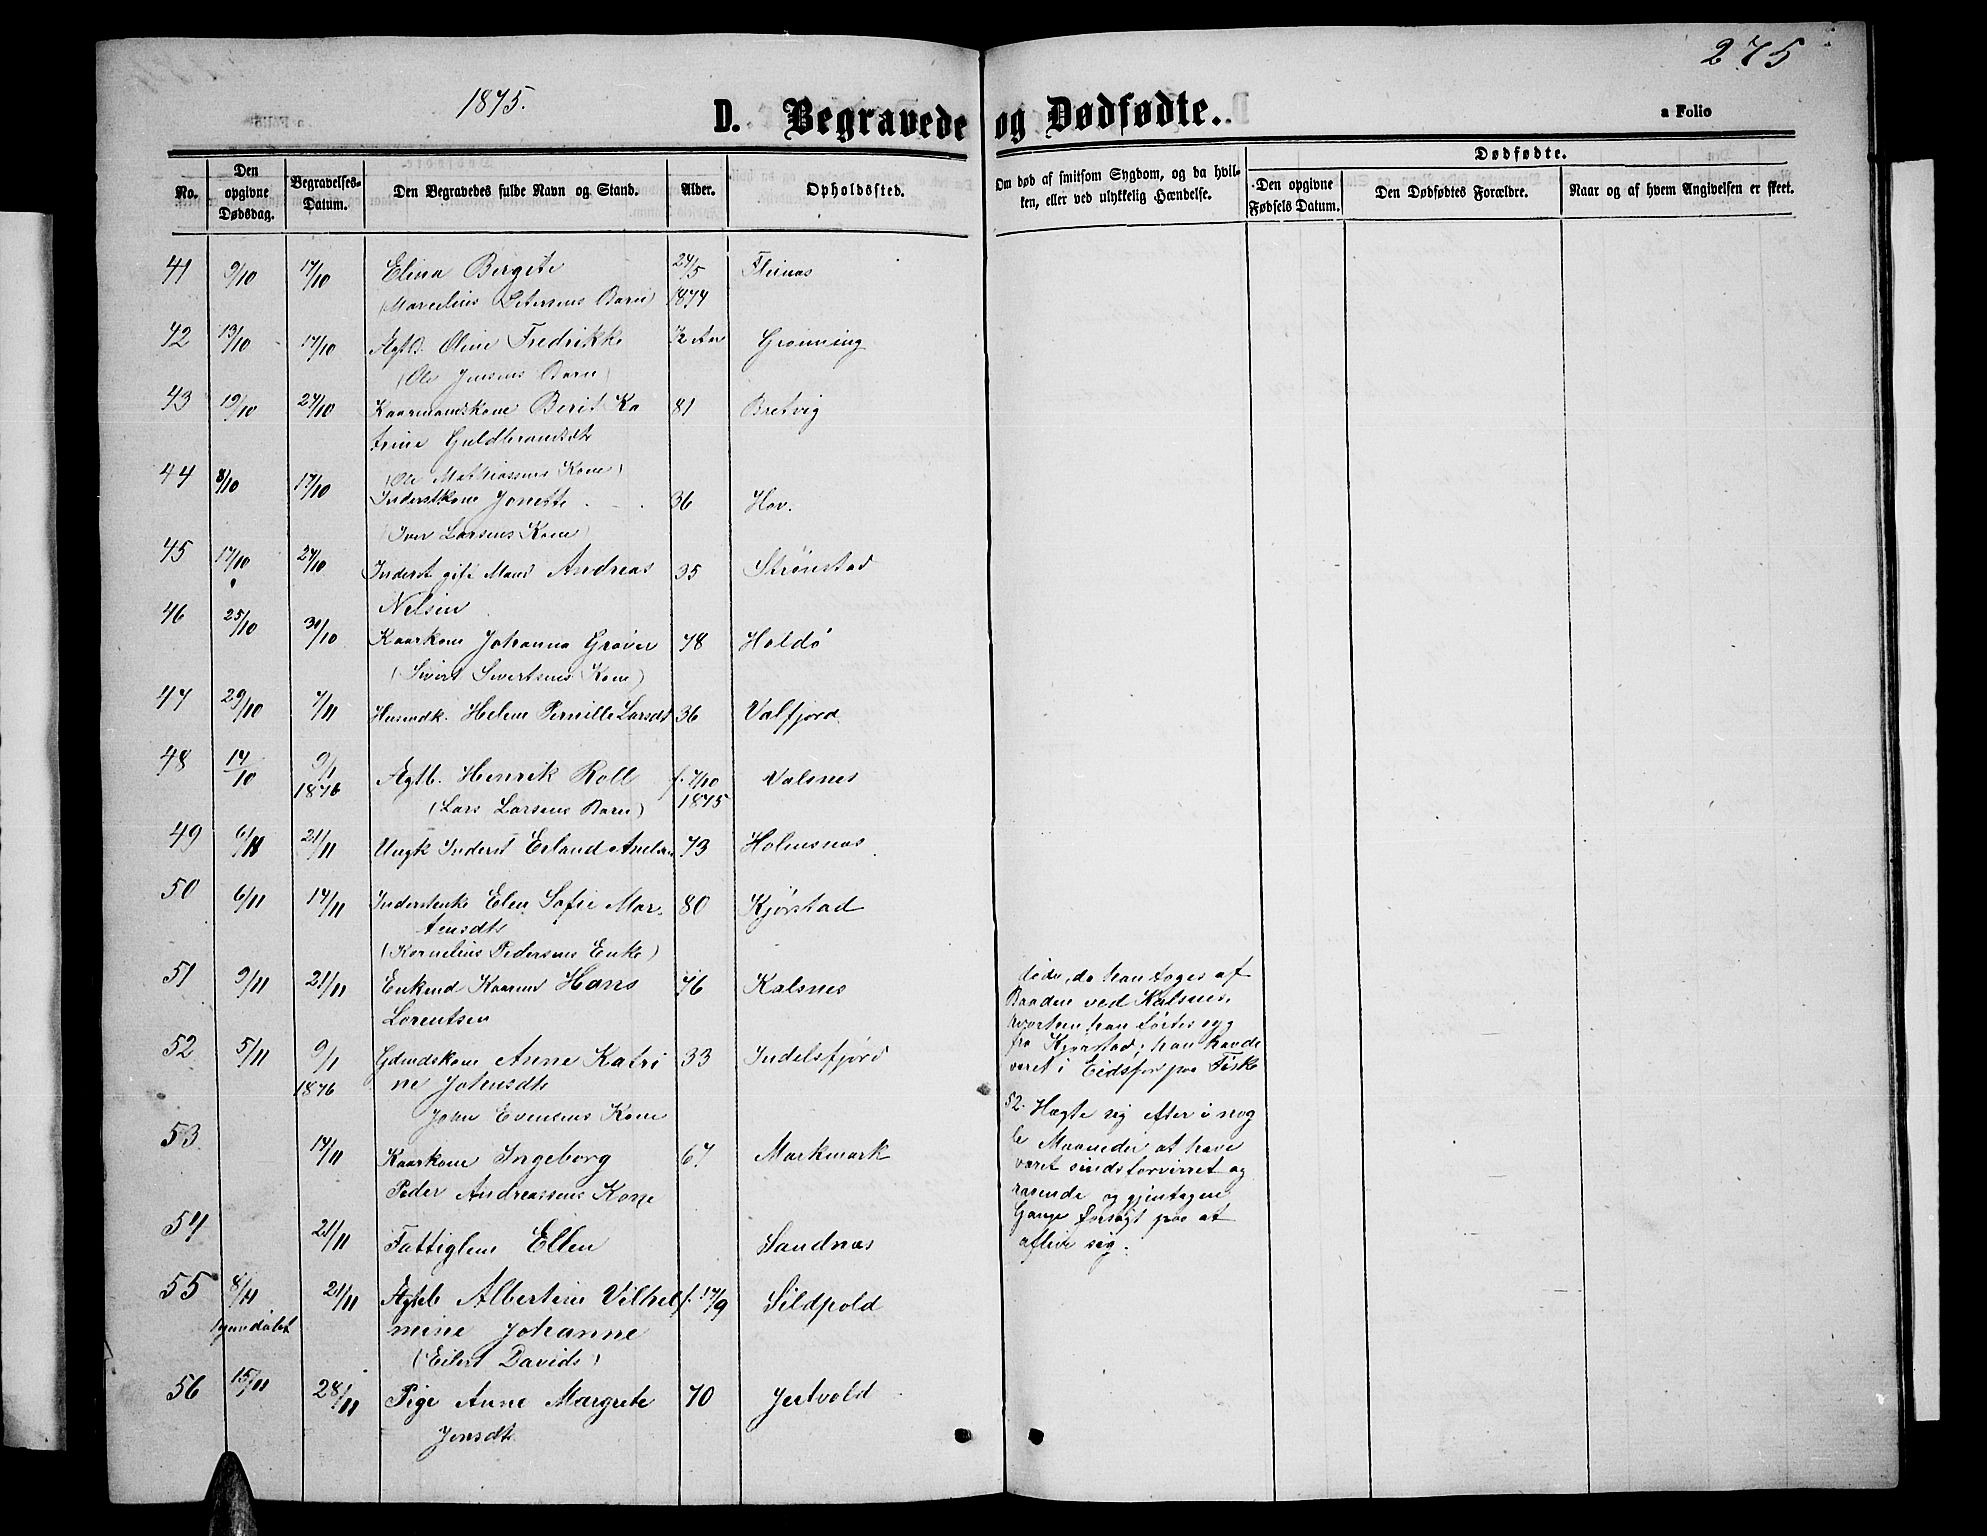 275
1875.
D. Begravede og Dødfødte.
a Folio
No.
Den opgivne Dødsdag.
Begravelses-Datum.
Den Begravedes fulde Navn og Stand.
Alder.
Opholdssted.
Om død af smitsom Sygdom, og da hvilken, eller ved ulykkelig Hændelse.
Dødfødte.
Den opgivne Fødsels Datum.
Den Dødfødtes Forældre.
Naar og af hvem Angivelsen er skeet.
41 9/10 17/10 Elina Bergete 24/5 Fleines
(Marcelius Petersens Barn) 1874
42 13/10 17/10 Ægtb. Oline Fredrikke ½ Aar Grønning
(Ole Jensens Barn)
43 19/10 24/10 Kaarmandskone Berit Ka 81 Bretvig
trine Guldbrandsdt
(Ole Mathiassens Kone)
44 8/10 17/10 Inderstkone Jonette 36 Hov.
(Iver Larsens Kone)
45 17/10 24/10 Inderst gift Mand Andreas 35 Strønstad
Nelsen
46 25/10 30/10 Kaarkone Johanna Grøver 78 Holdø
(Sivert Sivertsens Kone)
47 29/10 7/11 Husmdk. Helene Pernille Larsdt 36 Valfjord
48 14/10 9/1 Ægtb. Henrik Roll f. 7/10 Valsnes
1876 (Lars Larsens Barn) 1875
49 6/11 21/11 Ungk Inderst Erland 73 Holmsnes
50 6/11 14/11 Inderstenke Elen Sofie Mar- 80 Kjørstad
tensdt
(Kornelius Pedersens Enke)
51 9/11 21/11 Enkemd Kaarm Hans 76 Kalsnes
Lorentsen
døde, da han toges af
Baaden ved Kalsnes,
hvorhen han førtes syg
fra Kjørstad; han havde
været i Eidsfjor paa Fiske
52 5/11 9/1 Gdmdskone Anne Katri 33 Indelsfjord
1876 ne Johnsdt
John Evensens Kone
52. Hægte sig efter i nog
le Maaneder at have
været sindsforvirret og
rasende og gjentagne
Gange forsøgt paa at
aflive sig.
53 14/11 Kaarkone Ingeborg 67 Markmark
Peder Andreassens Kone
54 21/11 Fattiglem Ellen Sandnes
55 8/11 21/11 Ægteb Albertine Vilhel f. 17/9 Sildpold
hjemdøbt mine Johanne
(Eilert Davids)
56 15/11 28/11 Pige Anne Margrete 70 Jertvold
Jensdt.